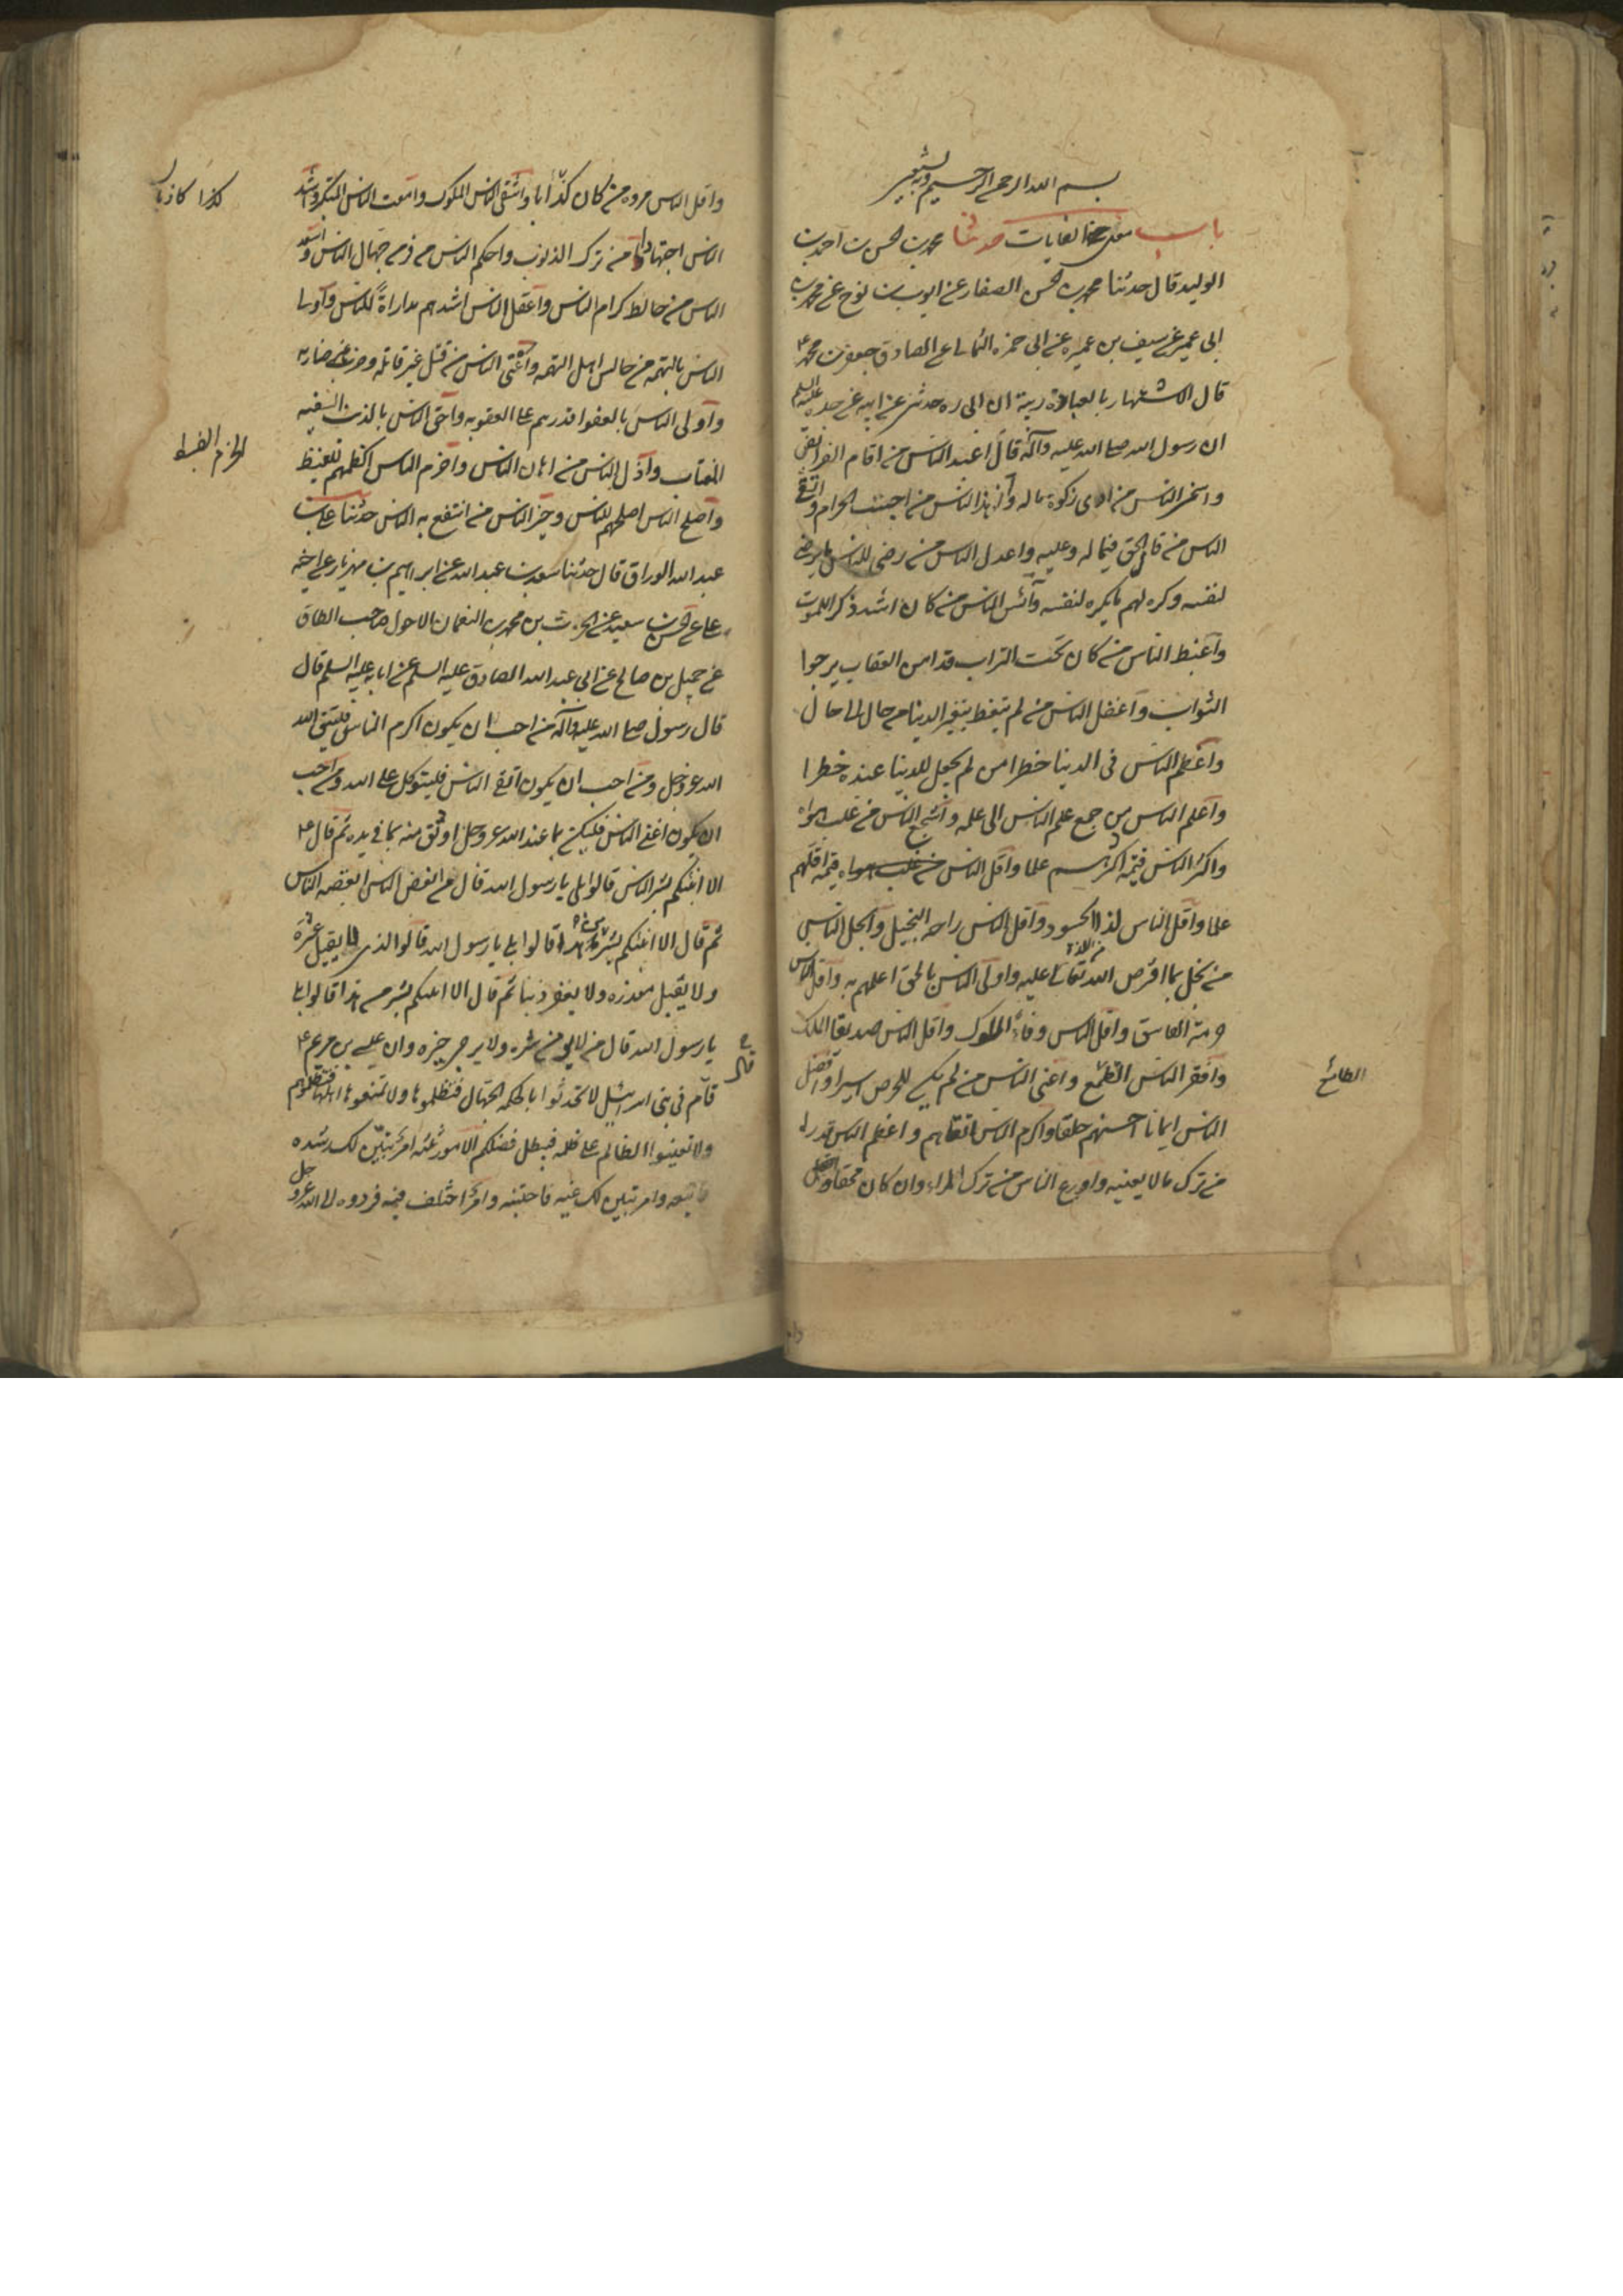 بسم الله الرحمن الرحيم وبه نستعين
باب معنى الغايات حدثنا محمد بن الحسن بن احمد بن
الوليد قال حدثنا محمد بن الحسن الصفار عن ايوب بن نوح عن محمد بن
ابى عمير عن سيف بن عميره عن ابى حمزه الثمالى عن الصادق جعفر بن محمد ع
قال الاشتهار بالعبادة ريبة ان ابى ره حدثنى عن ابيه عن جده عليه السلم
ان رسول الله صلى الله عليه وآله قال اعبد الناس من اقام الفرائض
واسخى الناس من ادى زكوة ماله وازهد الناس من اجتنب الحرام واتقى
الناس من قال الحق فيما له وعليه واعدل الناس من رضى للناس ما يرضى
لنفسه وكره لهم ما يكره لنفسه وأكيس الناس من كان اشد ذكرا للموت
وأغبط الناس من كان تحت التراب قد امن العقاب يرجوا
الثواب وأغفل الناس من لم يتعظ بتغير الدنيا من حال الى حال
وأعظم الناس فى الدنيا خطرا من لم يجعل للدنيا عنده خطرا
وأعلم الناس من جمع علم الناس الى علمه وأشجع الناس من غلب هواه
واكثر الناس قيمة اكثرهم علما واقل الناس قيمة اقلهم
علما وأقل الناس لذة الحسود وأقل الناس راحه البخيل وأبخل الناس
من بخل بما افترض الله تعالى عليه واولى الناس بالحق اعلمهم به وأقل الناس
حرمة الفاسق واقل الناس وفاءً الملوك واقل الناس صديقا الملك
وأفقر الناس الطمع واغنى الناس من لم يكن للحرص اسيرا وأفضل
الطائع
الناس ايمانا احسنهم خلقا واكرم الناس اتقاهم واعظم الناس قدرا
من ترك مالا يعنيه وأورع الناس من ترك المراء وان كان محقا
واقل الناس مروه من كان كذابا وأشقى الناس الملوك وامقت الناس المتكبر وأشد
كذا كاذبا
الناس اجتهادا من ترك الذنوب واحكم الناس من فر من جهال الناس وأسعد
الناس من خالط كرام الناس وأعقل الناس اشدهم مداراةً للناس وأولى
الناس بالتهمه من جالس اهل التهمه وأعتى الناس من قتل غير قاتله وضرب غير ضاربه
وأولى الناس بالعفو اقدرهم على العقوبه وأحق الناس بالذنب السفيه
المغتاب وأذل الناس من اهان الناس وأحزم الناس اكظمهم للغيظ
وأصلح الناس اصلحهم للناس وخير الناس من انتفع به الناس حدثنا على بن
عبد الله الوراق قال حدثنا سعد بن عبد الله عن ابرهيم بن مهزيار عن اخيه
على عن الحسن بن سعيد عن الحرث بن محمد بن النعمان الاحول صاحب الطاق
عن جميل بن صالح عن ابى عبد الله الصادق عليه السلم عن ابائه عليه السلم قال
قال رسول صلى الله عليه وآله من احب ان يكون اكرم الناس فليتق الله
الله عز وجل ومن احب ان يكون اتقى الناس فليتوكل على الله ومن احب
ان يكون اغنى الناس فليكن بما عند الله عز وجل اوثق منه بما فى يده ثم قال ع
الا انبئكم بشر الناس قالوا بلى يا رسول الله قال من ابغض الناس ابغضه الناس
ثم قال الا انبئكم بشر من هذا قالوا بلى يا رسول الله قالوا الذى لا يقيل عثرة
ولا يقبل معذره ولا يغفر ذنبا ثم قال الا انبئكم بشر من هذا قالوا بلى
يا رسول الله قال من لا يؤمن شره ولا يرجى خيره وان عيسى بن مريم ع
قام فى بنى اسرائيل لا تحدثوا بالحكمه الجهال فتظلموها ولا تمنعوها اهلها فتظلموهم
ولا تعينوا الظالم على ظلمه فيبطل فضلكم الامور ثلثه امر تبين لك رشده
فاتبعه وامر تبين لك غيه فاجتنبه وامر اختلف فيه فردوه الى الله عز وجل